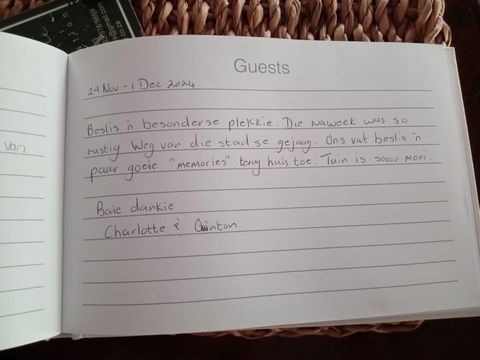 Guests
29 Nov - 1 Dec 2024
Beslis 'n besonderse plekkie. Die naweek was so
rustig Weg van die stad se gejaag. Ons vat beslis 'n
paar goeie "memories" terug huis toe. Tuin is soooo mooi.
Baie dankie
Charlotte & Quinton
van